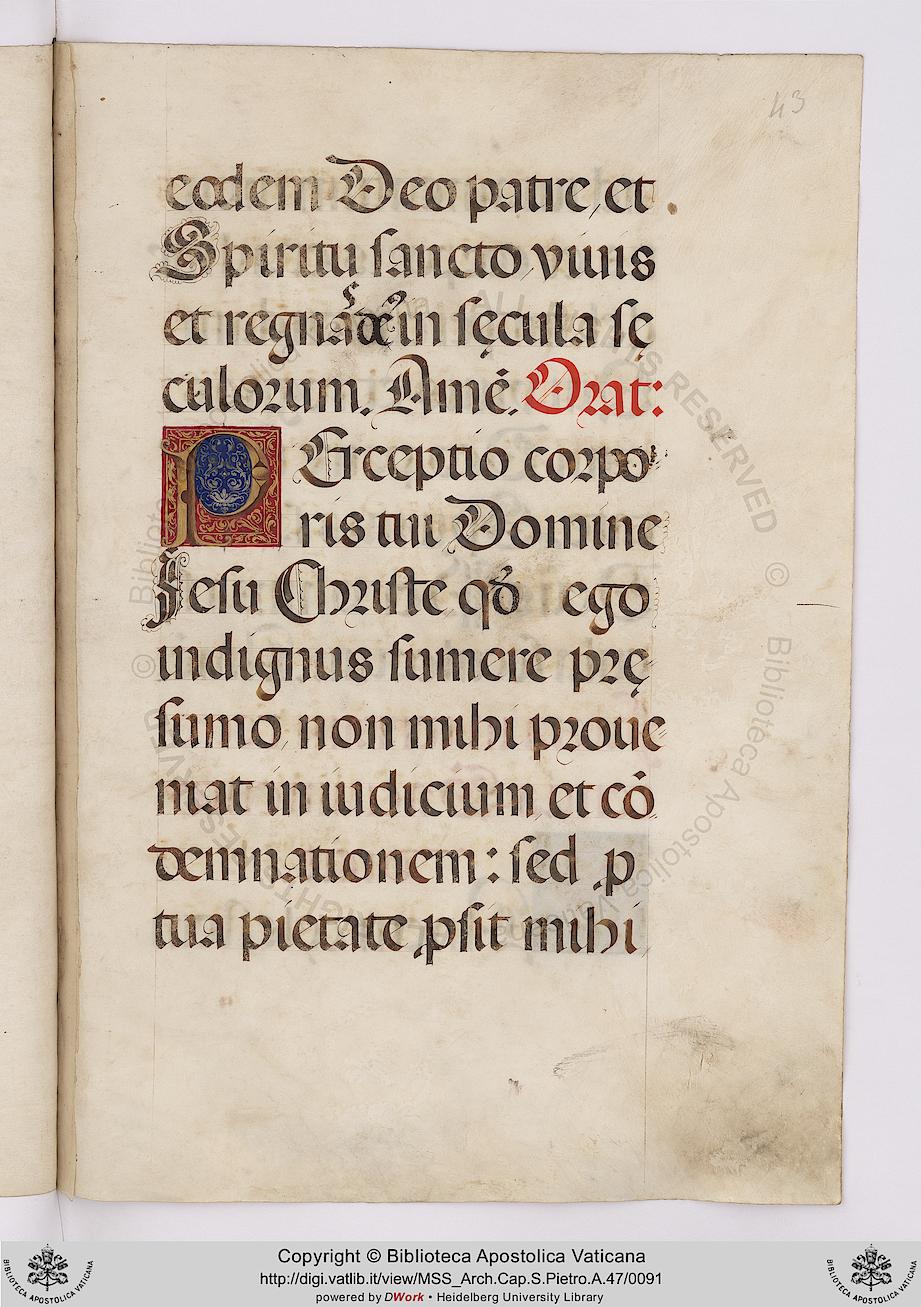 43
eodem Deo patre, et
Spiritu sancto, viuis
et regnas in sęcula sę
culorum. Amē. Orat:
PErceptio corpo
ris tui Domine
Jesu Christe qđ ego
indignus sumere prę
sumo, non mihi proue
niat in iudicium, et cō
demnationem: sed ꝓ
tua pietate ꝓsit mihi
Copyright © Biblioteca Apostolica Vaticana
http://digi.vatlib.it/view/MSS_Arch.Cap.S.Pietro.A.47/0091
powered by DWork • Heidelberg University Library
BIBLIOTECA APOSTOLICA VATICANA
BIBLIOTECA APOSTOLICA VATICANA